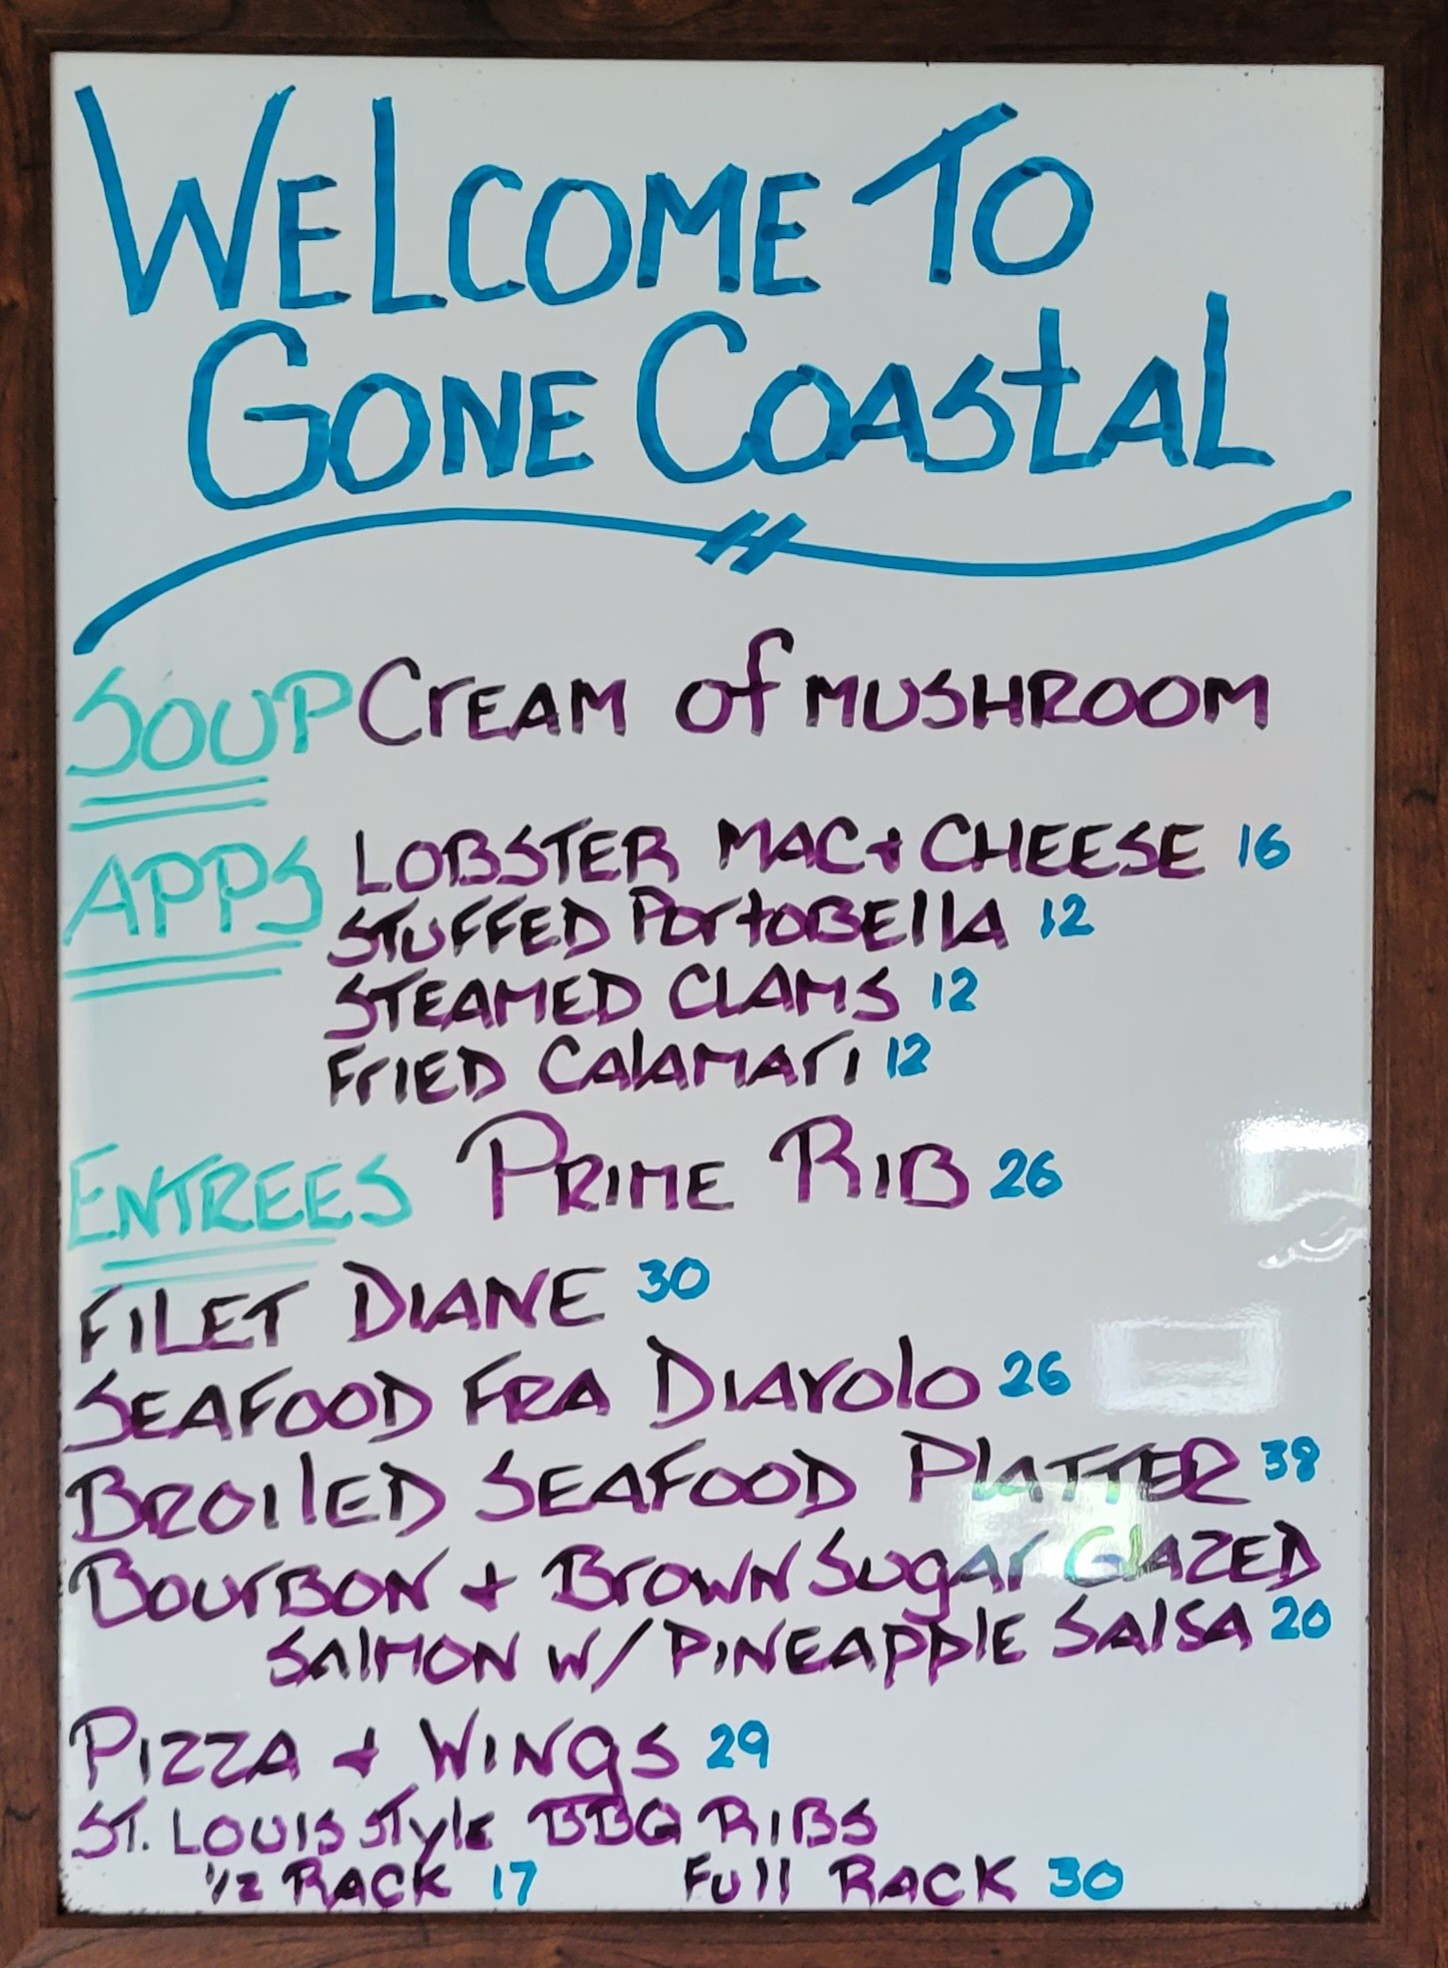 WELCOME TO
GONE COASTAL
SOUP CREAM of MUSHROOM
APPS LOBSTER MAC + CHEESE 16
STUFFED PORTOBELLA 12
STEAMED CLAMS 12
FRIED CALAMARI 12
ENTREES PRIME RIB 26
FILET DIANE 30
SEAFOOD FRA DIAVOLO 26
BROILED SEAFOOD PLATTER 38
BOURBON + BROWN SUGAR GLAZED
SALMON W/ PINEAPPLE SALSA 20
PIZZA + WINGS 29
ST. LOUIS STYLE BBQ RIBS
1/2 RACK 17 FULL RACK 30